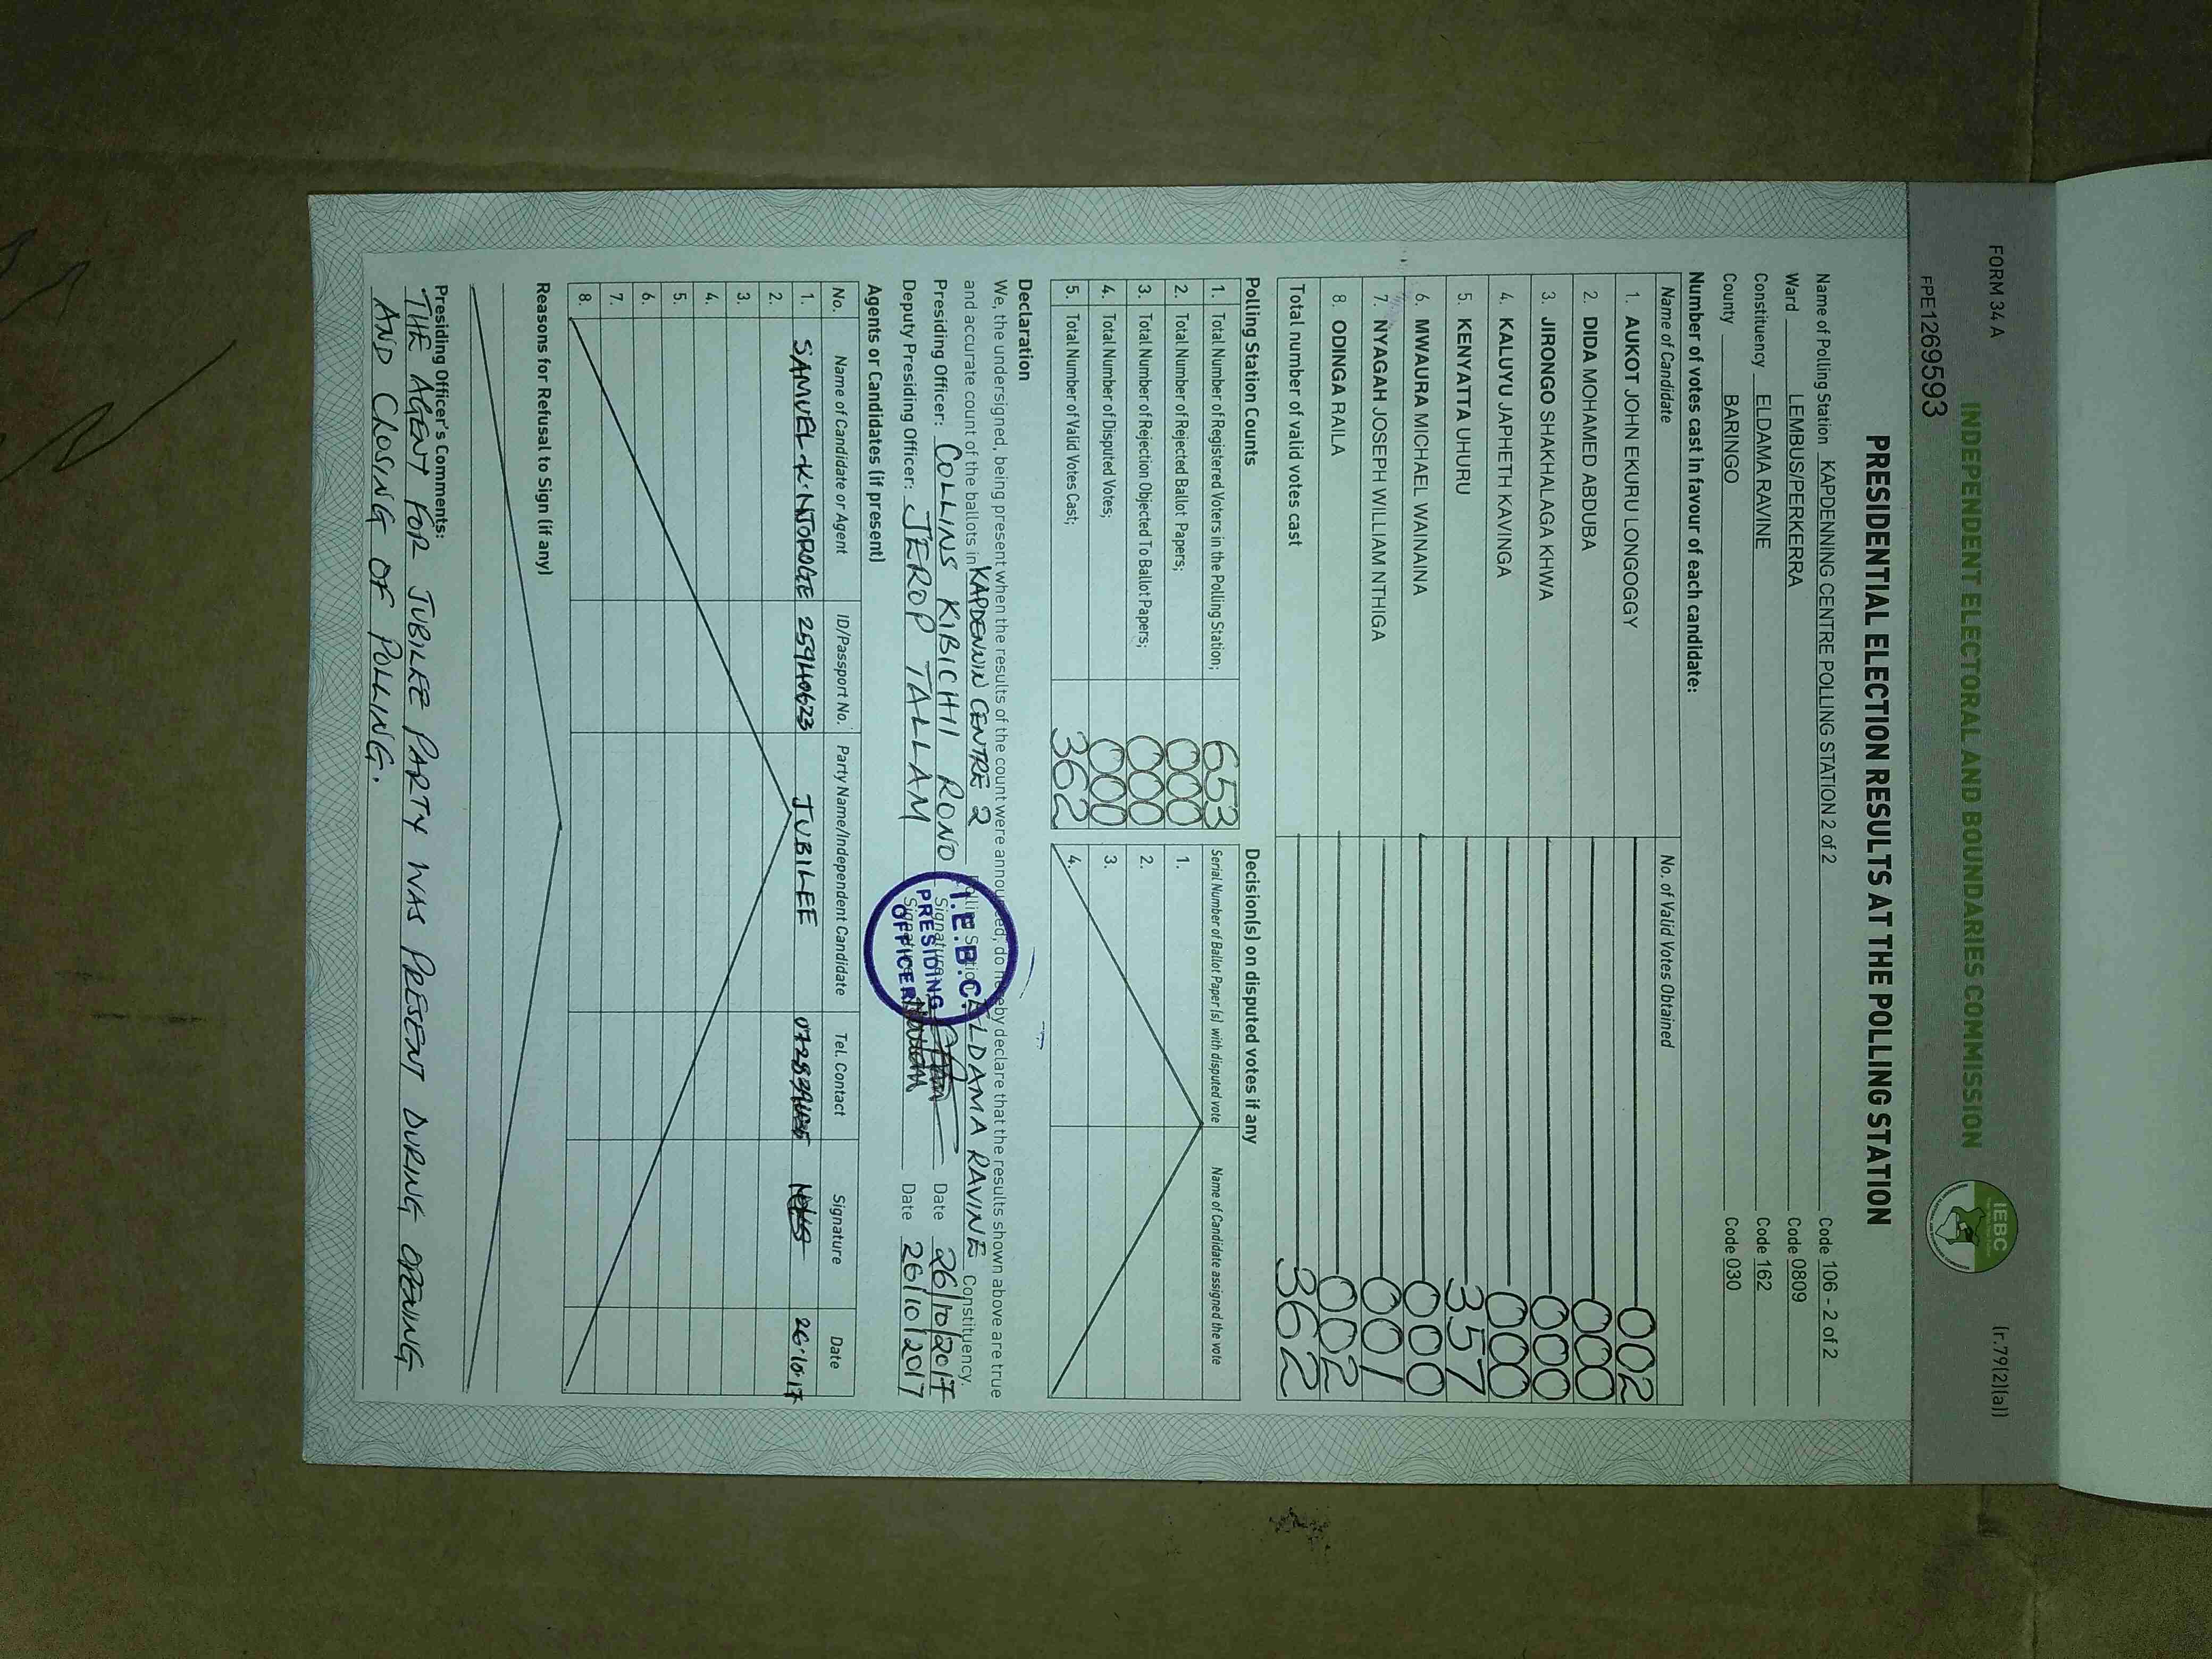 FORM 34 A
(r.79(2)(a))
INDEPENDENT ELECTORAL AND BOUNDARIES COMMISSION
IEBC
FPE1269593
PRESIDENTIAL ELECTION RESULTS AT THE POLLING STATION
Name of Polling Station KAPDENNING CENTRE POLLING STATION 2 of 2 Code 106 - 2 of 2
Ward LEMBUS/PERKERRA Code 0809
Constituency ELDAMA RAVINE Code 162
County BARINGO Code 030
Number of votes cast in favour of each candidate:
Name of Candidate No. of Valid Votes Obtained
1. AUKOT JOHN EKURU LONGOGGY 002
2. DIDA MOHAMED ABDUBA 000
3. JIRONGO SHAKHALAGA KHWA 000
4. KALUYU JAPHETH KAVINGA 000
5. KENYATTA UHURU 357
6. MWAURA MICHAEL WAINAINA 000
7. NYAGAH JOSEPH WILLIAM NTHIGA 001
8. ODINGA RAILA 002
Total number of valid votes cast 362
Polling Station Counts
1. Total Number of Registered Voters in the Polling Station; 653
2. Total Number of Rejected Ballot Papers; 000
3. Total Number of Rejection Objected To Ballot Papers; 000
4. Total Number of Disputed Votes; 000
5. Total Number of Valid Votes Cast; 362
Decision(s) on disputed votes if any
Serial Number of Ballot Paper (s) with disputed vote Name of Candidate assigned the vote
1.
2.
3.
4.
Declaration
We, the undersigned, being present when the results of the count were announced, do hereby declare that the results shown above are true
and accurate count of the ballots in KAPDENNIN CENTRE 2 Polling Station ELDAMA RAVINE Constituency.
Presiding Officer: COLLINS KIBICHII RONO Signature Date 26/10/2017
Deputy Presiding Officer: JEROP TALLAM Signature Date 26/10/2017
I.E.B.C.
PRESIDING
OFFICER
Agents or Candidates (if present)
No. Name of Candidate or Agent ID/Passport No. Party Name/Independent Candidate Tel. Contact Signature Date
1. SAMUEL K. NJOROGE 25940623 JUBILEE 26.10.17
2.
3.
4.
5.
6.
7.
8.
Reasons for Refusal to Sign (if any)
Presiding Officer's Comments:
THE AGENT FOR JUBILEE PARTY WAS PRESENT DURING OPENING
AND CLOSING OF POLLING.